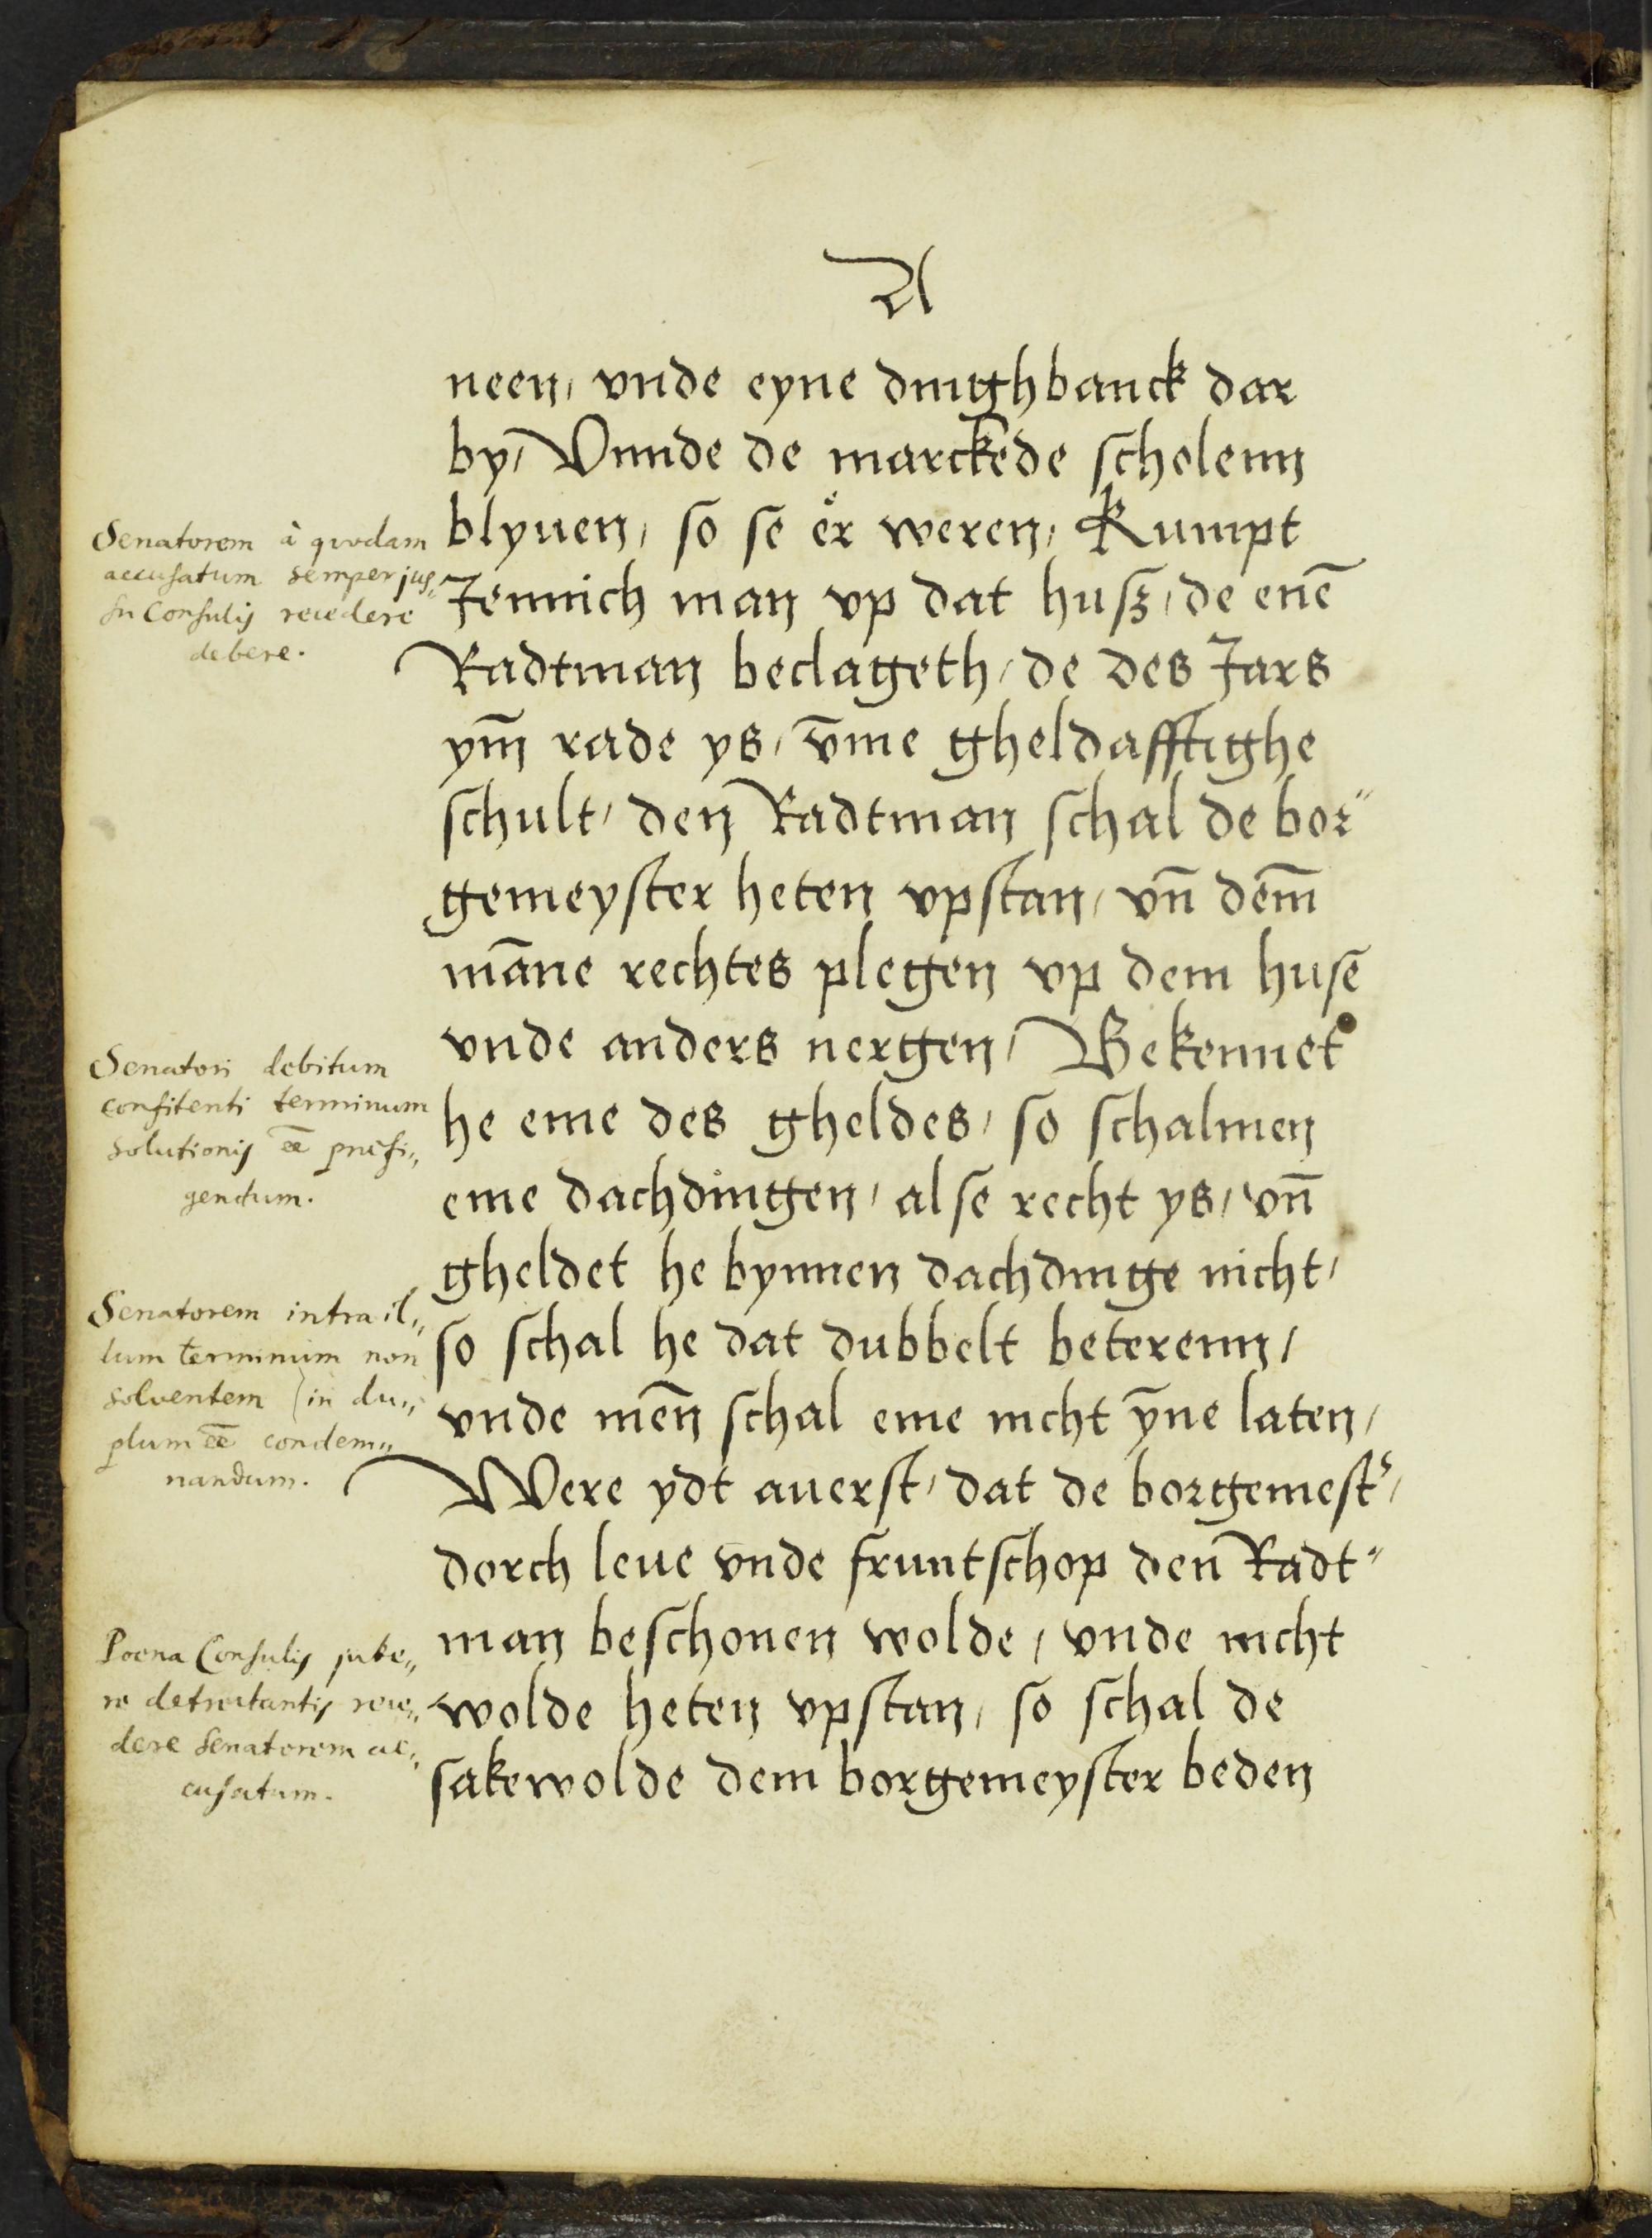 A
neen, vnde eyne dinghbanck dar
by, Vnnde de marckede scholenn
blyuen, so se er weren, Kumpt
Jennich man vp dat husz, de enē
Radtman beclageth, de des Jars
ym̄ rade ys, v̄me gheldafftighe
schult, den Radtman schal de bor"
gemeyster heten vpstan, vn̄ dem̄
māne rechtes plegen vp dem huse
vnde anders nergen, Bekennet
he eme des gheldes, so schalmen
eme dachdingen, alse recht ys, vn̄
gheldet he bynnen dachdinge nicht,
so schal he dat dubbelt beterenn,
vnde men̄ schal eme nicht ȳne laten,
Were ydt auerst, dat de borgemest᾽,
dorch leue vnde fruntschop den Radt"
man beschonen wolde, vnde nicht
wolde heten vpstan, so schal de
sakewolde dem borgemeyster beden
Senatorem à quodam
accusatum semper jus„
su Consulis recedere
debere.
Senatori debitum
confitenti terminum
solutionis eē præfi„
gendum.
Senatorem intra il„
lum terminum non
solventem in du„
plum eē condem„
nandum.
Poena Consulis jube„
re detrectantis rece„
dere Senatorem ac„
cusatum.